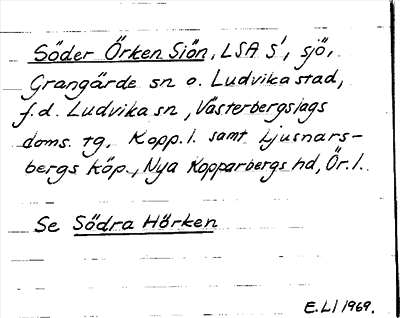 Söder Örken Siön, LSA S', sjö,
Grangärde sn o. Ludvika stad,
f.d. Ludvika sn, Västerbergslags
doms. tg, Kopp. l. samt Ljusnars-
bergs köp., Nya Kopparbergs hd, Ör. l.
Se Södra Hörken
E.Ll 1969.